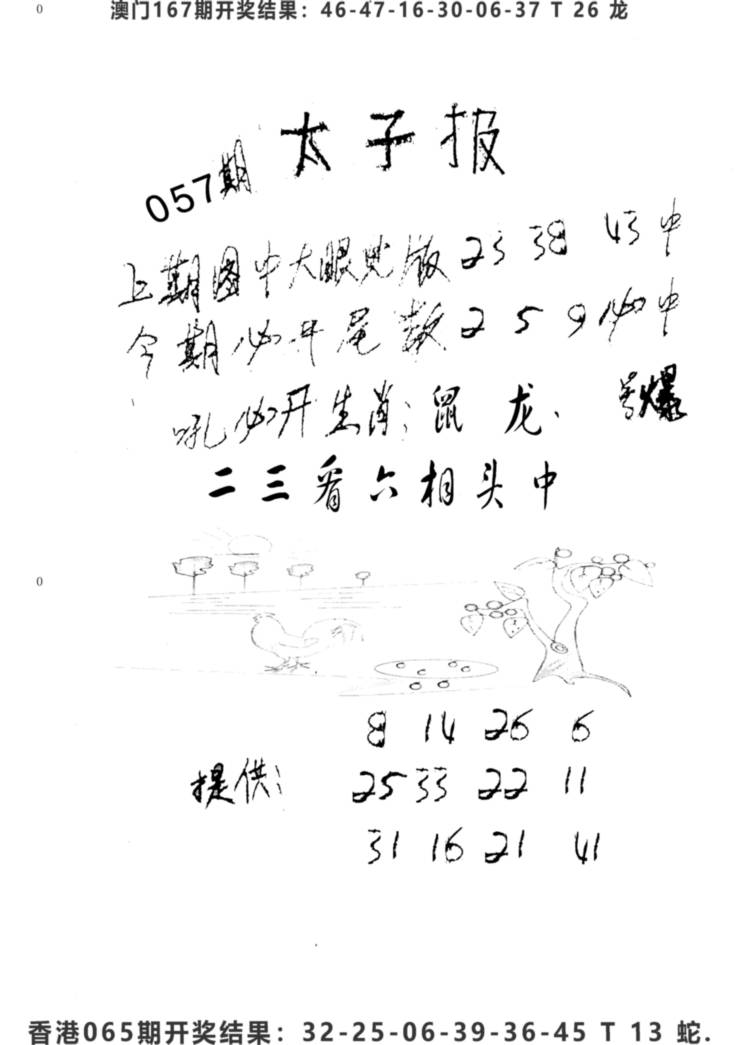 0
澳门167期开奖结果：46-47-16-30-06-37 T 26 龙
太子报
057期
上期图中大眼鬼版 23 38 43 中
今期必开尾数 2 5 9 必中
吼必开生肖：鼠 龙.
爆
二三看六相头中
0
8 14 26 6
提供： 25 33 22 11
31 16 21 41
香港065期开奖结果：32-25-06-39-36-45 T 13 蛇.